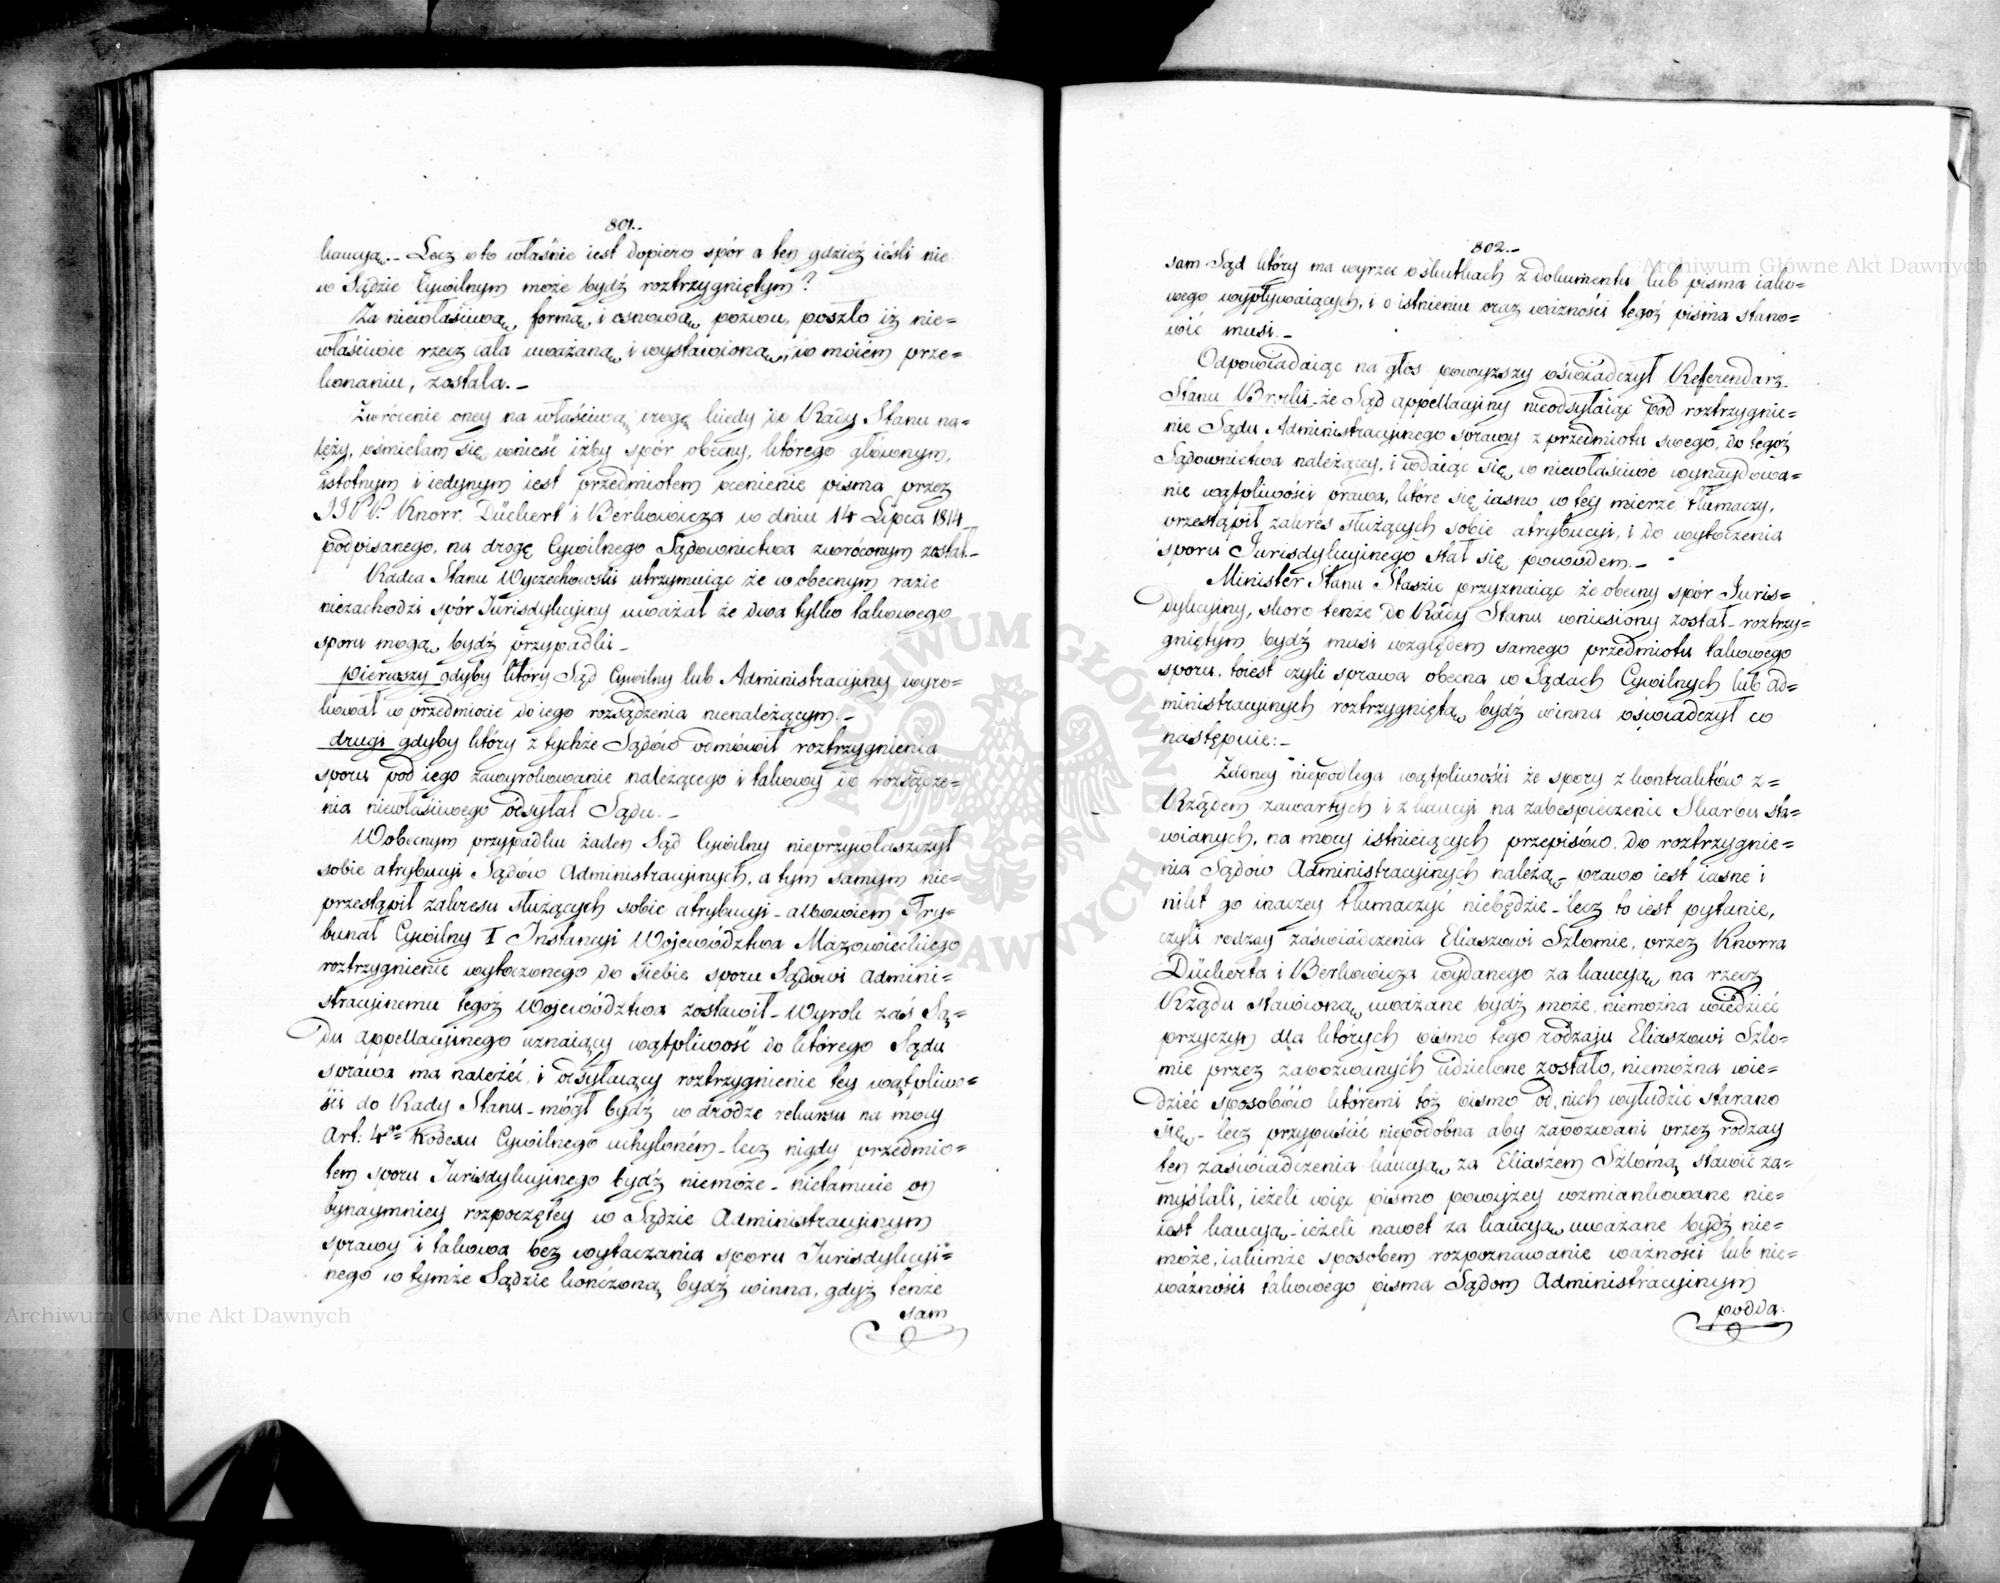 801.-
kaucyą.- Lecz oto właśnie iest dopiero spór a ten gdzież ieśli nie
w Sądzie Cywilnym może bydź roztrzygniętym?
Za niewłaściwą, formą, i osnową pozwu, poszło iż nie=
właściwie rzecz cała uważaną i wystawioną, w moiém prze=
konaniu, została.-
Zwrócenie oney na właściwą drogę kiedy do Rady Stanu na=
leży, ośmielam się wnieść iżby spór obecny, którego głównym,
istotnym i iedynym iest przedmiotem ocenienie pisma przez
JJPP. Knorr, Dückert i Berkowicza w dniu 14 Lipca 1814
podpisanego, na drogę Cywilnego Sądownictwa zwróconym został.-
Radca Stanu Wyczechowski utrzymuiąc że w obecnym razie
niezachodzi spór Jurisdykcyiny uważał że dwa tylko takowego
sporu mogą bydź przypadki-
pierwszy gdyby który Sąd Cywilny lub Administracyiny wyro=
kował w przedmiocie do iego rozsądzenia nienależącym.-
drugi gdyby który z tychże Sądów odmówił roztrzygnienia
sporu pod iego zawyrokowanie należącego i takowy do rozsądze=
nia niewłaściwego odsyłał Sądu.-
W obecnym przypadku żaden Sąd Cywilny nieprzywłaszczył
sobie atrybucyi Sądów Administracyinych, a tym samym nie=
przestąpił zakresu służących sobie atrybucyi- albowiem Try=
bunał Cywilny I Instancyi Województwa Mazowieckiego
roztrzygnienie wytoczonego do siebie sporu Sądowi Admini=
stracyinemu tegoż Województwa zostawił- Wyrok zaś Są=
du Appellacyinego uznaiący wątpliwość do którego Sądu
sprawa ma należéć, i odsyłaiący roztrzygnienie tey wątpliwo=
ści do Rady Stanu- mógł bydź w drodze rekursu na mocy
Art: 4go Kodexu Cywilnego uchyloném- lecz nigdy przedmio=
tem sporu Jurisdykcyinego bydź niemoże- nietamuie on
bynaymniey rozpoczętey w Sądzie Administracyinym
sprawy i takowa bez wytaczania sporu Jurisdykcyi=
nego w tymże Sądzie kończoną bydź winna, gdyż tenże
sam
802.-
sam Sąd który ma wyrzec o skutkach z dokumentu lub pisma iako=
wego wypływaiących, i o istnieniu oraz ważności tegoż pisma stano=
wić musi.-
Odpowiadaiąc na głos powyższy oświadczył Referendarz
Stanu Brocki- że Sąd appellacyiny nieodsyłaiąc pod roztrzygnie=
nie Sądu Administracyinego sprawy z przedmiotu swego, do tegoż
Sądownictwa należącey, i wdaiąc się w niewłaściwe wynaydowa=
nie wątpliwości prawa, które się iasno w tey mierze tłumaczy,
przestąpił zakres służących sobie atrybucyi, i do wytoczenia
sporu Jurisdykcyinego stał się powodem.-
Minister Stanu Staszic przyznaiąc że obecny spór Juris=
dykcyiny, skoro tenże do Rady Stanu wniesiony został- roztrzy=
gniętym bydź musi względem samego przedmiotu takowego
sporu, toiest czyli sprawa obecna w Sądach Cywilnych lub ad=
ministracyinych roztrzygnięta bydź winna oświadczył co
następuie:-
Żadney niepodlega wątpliwości że spory z kontraktów z=
Rządem zawartych i z kaucyi na zabespieczenie Skarbu sta=
wianych, na mocy istnieiących przepisów, do roztrzygnie=
nia Sądów Administracyinych należą- prawo iest iasne i
nikt go inaczey tłumaczyć niebędzie- lecz to iest pytanie,
czyli rodzay zaświadczenia Eliaszowi Szlomie, przez Knorra
Dückerta i Berkowicza wydanego za kaucyą na rzecz
Rządu stawioną uważane bydź może, niemożna wiedzieć
przyczyn dla których pismo tego rodzaju Eliaszowi Szlo=
mie przez zapozwanych udzielone zostało, niemożna wie=
dzieć sposobów któremi toż pismo od nich wyłudzić starano
się- lecz przypuścić niepodobna aby zapozwani przez rodzay
ten zaświadczenia kaucyą za Eliaszem Szlomą stawić za=
myślali, ieżeli więc pismo powyżey wzmiankowane nie=
iest kaucyą- ieżeli nawet za kaucyą uważane bydź nie=
może, iakimże sposobem rozpoznawanie ważności lub nie=
ważności takowego pisma Sądom Administracyinym
podda.
Archiwum Główne Akt Dawnych
Archiwum Główne Akt Dawnych
ARCHIWUM GŁÓWNE AKT DAWNYCH